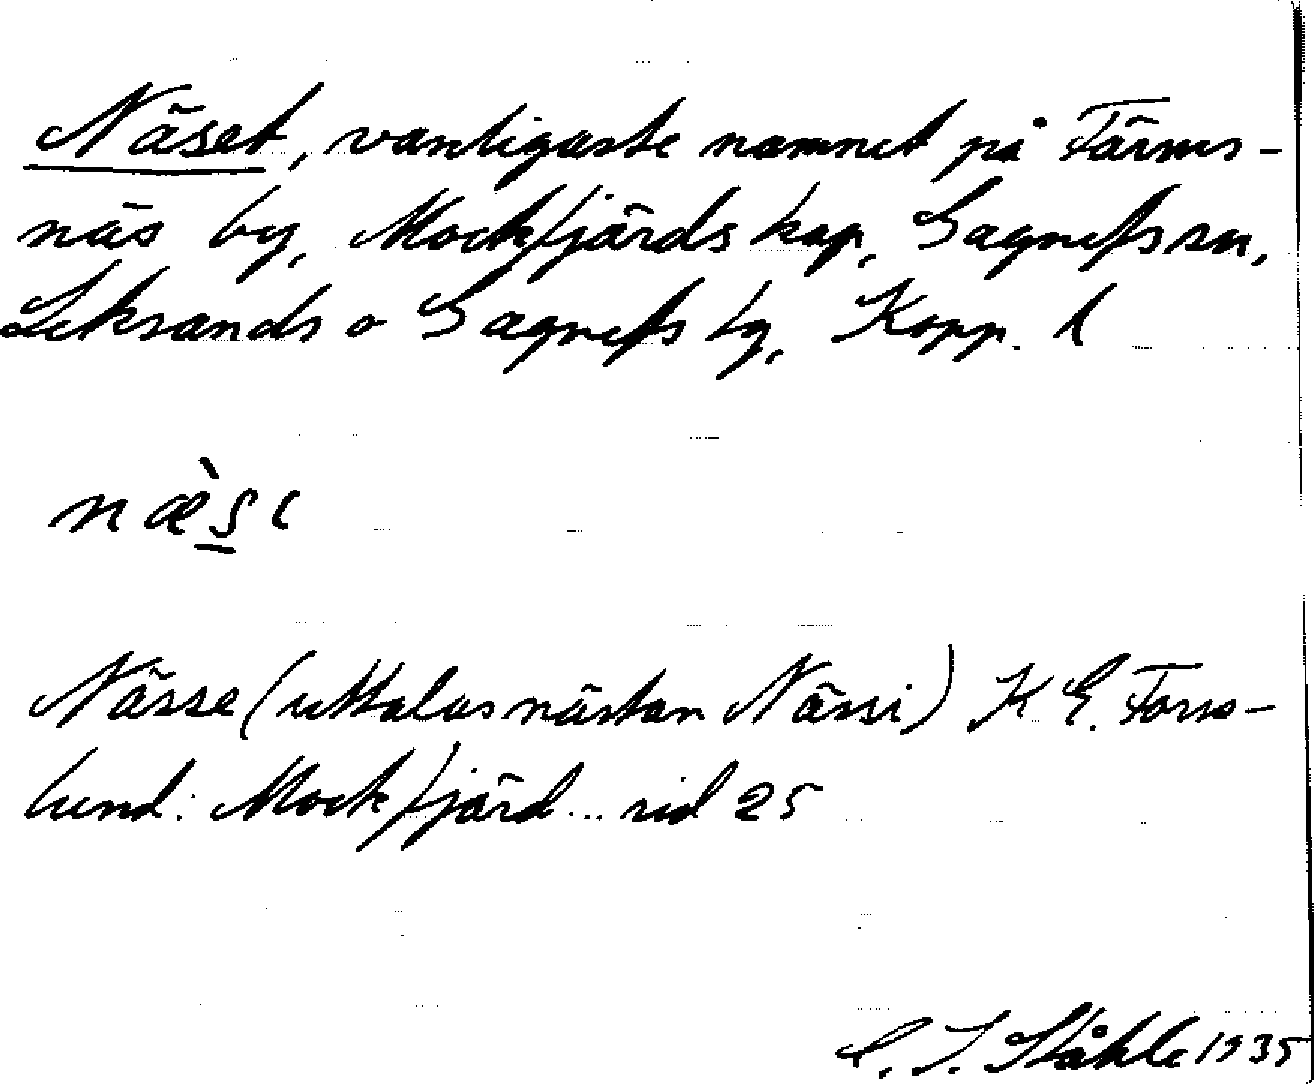 Näset, vanligaste namnet på Färns-
näs by, Mockfjärds kap, Gagnefs sn,
Leksands o Gagnefs tg, Kopp. l
næ̀sı
Nässe (uttalas nästan Nässi) K E. Forss-
lund: Mockfjärd... sid 25
C. I. Ståhle 1935